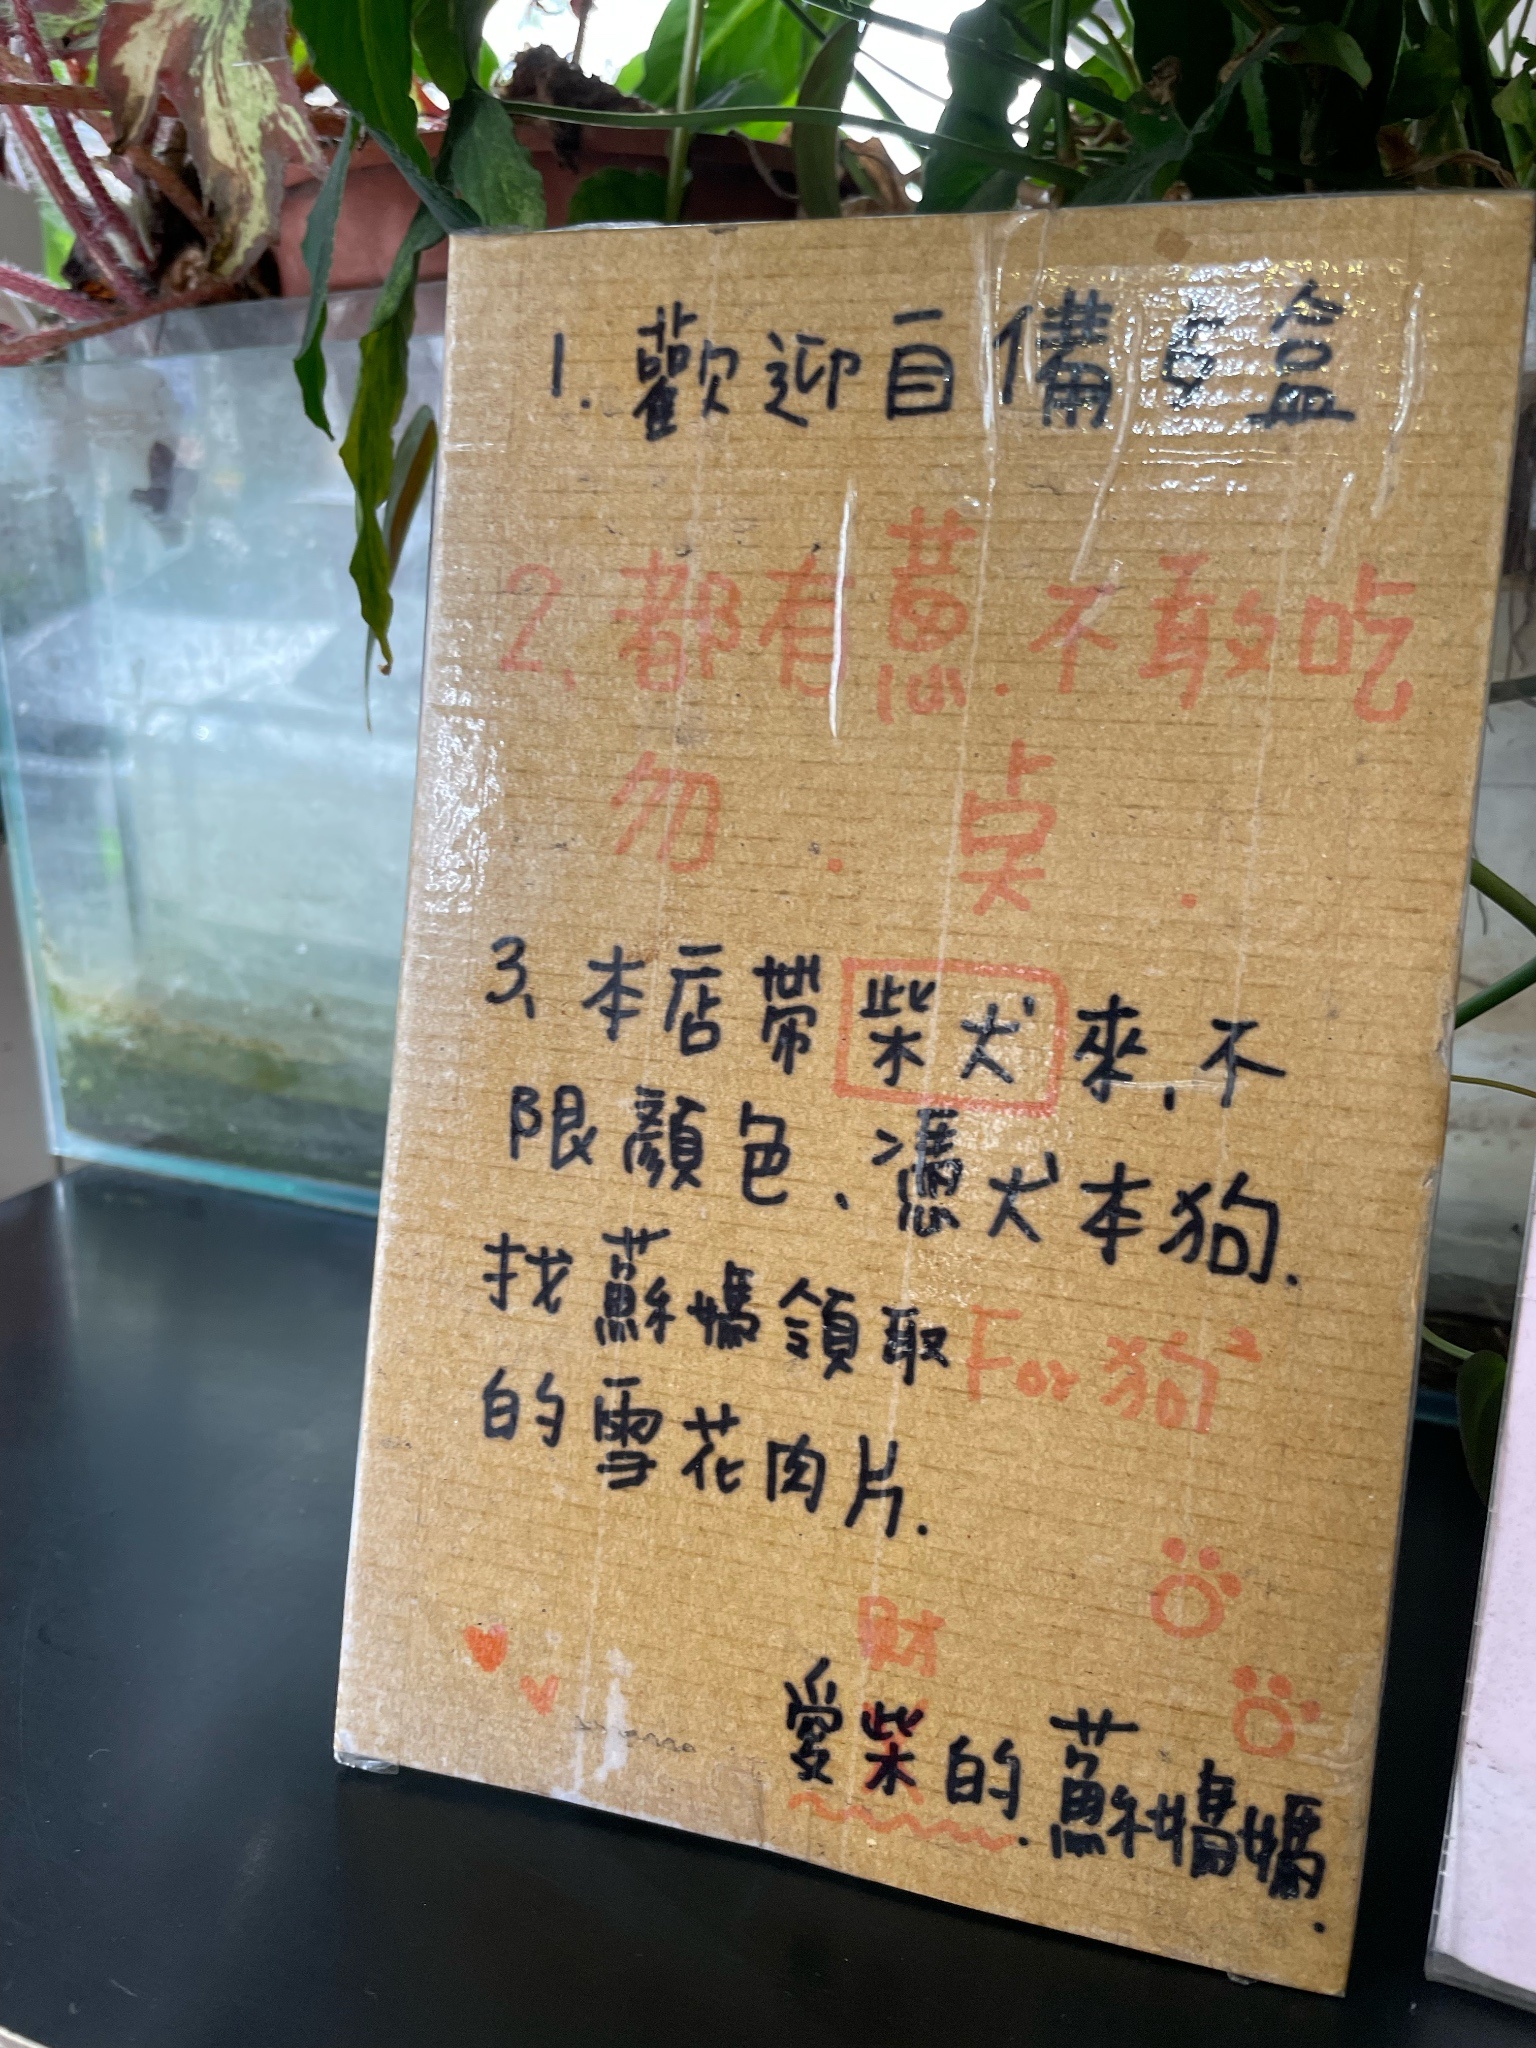 1. 歡迎自備ㄎ盒
2. 都有蔥. 不敢吃
勿. 桌.
3. 本店帶柴犬來, 不
限顏色、憑犬本狗.
找蘇媽領取 For 狗²
的雪花肉片.
財
愛柴的. 蘇媽媽.